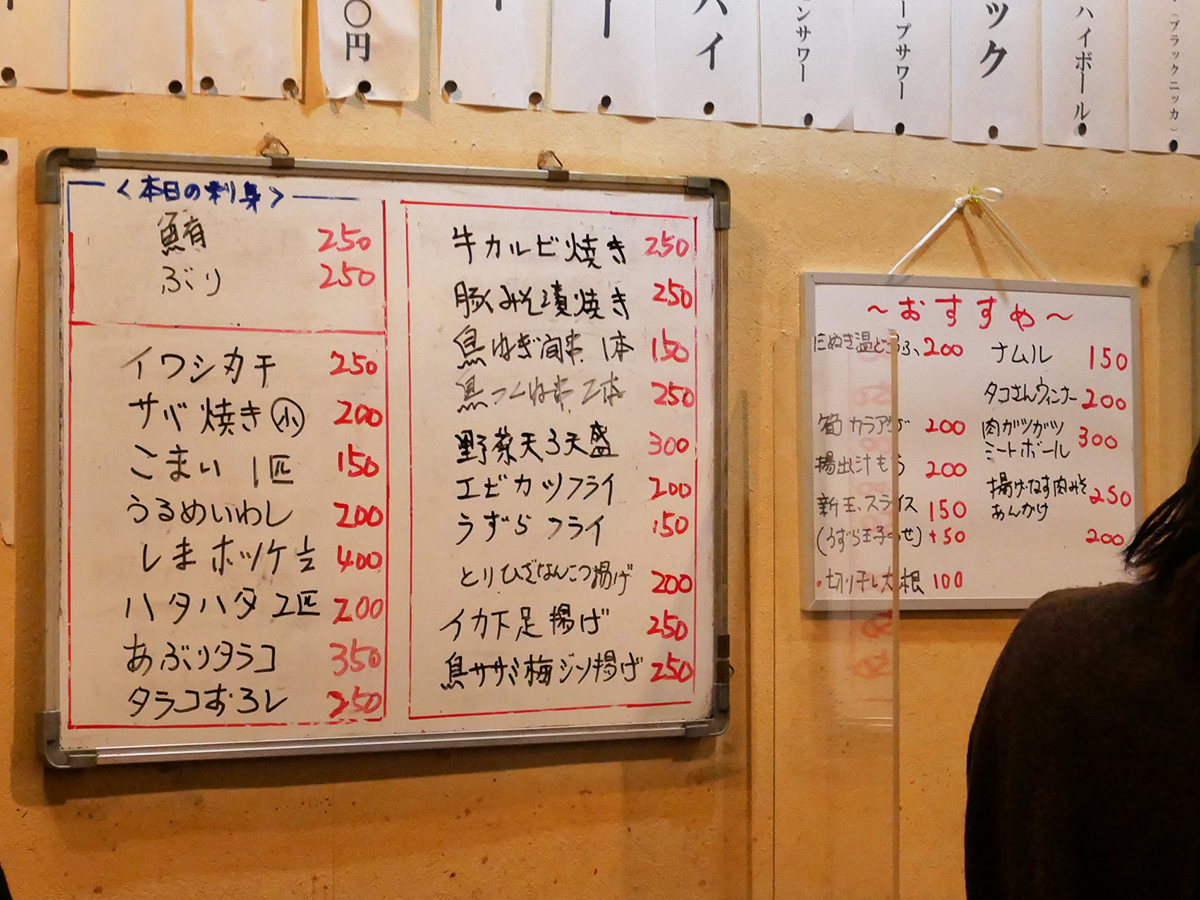 〇円
ハイ
ンサワー
ープサワー
ック
ハイボール
(ブラックニッカ)
<本日の刺身>
鮪 250
ぶり 250
イワシカチ 250
サバ焼き㋛ 200
こまい 1匹 150
うるめいわし 200
しまホッケ½ 400
ハタハタ2匹 200
あぶりタラコ 350
タラコおろし 250
牛カルビ焼き 250
豚みそ漬焼き 250
鳥ねぎ間串 1本 150
鳥つくね串 2本 250
野菜天3天盛 300
エビカツフライ 200
うずらフライ 150
とりひざなんこつ揚げ 200
イカ下足揚げ 250
鳥ササミ梅ジソ揚げ 250
~おすすめ~
たぬき温どうふ、200
カラアゲ 200
揚出汁もち 200
新玉、スライス 150
(うずら玉子のせ) +50
・切り干し大根 100
ナムル 150
タコさんウィンナー 200
肉ガツガツ
ミートボール 300
揚げなす肉みそ
あんかけ 250
200